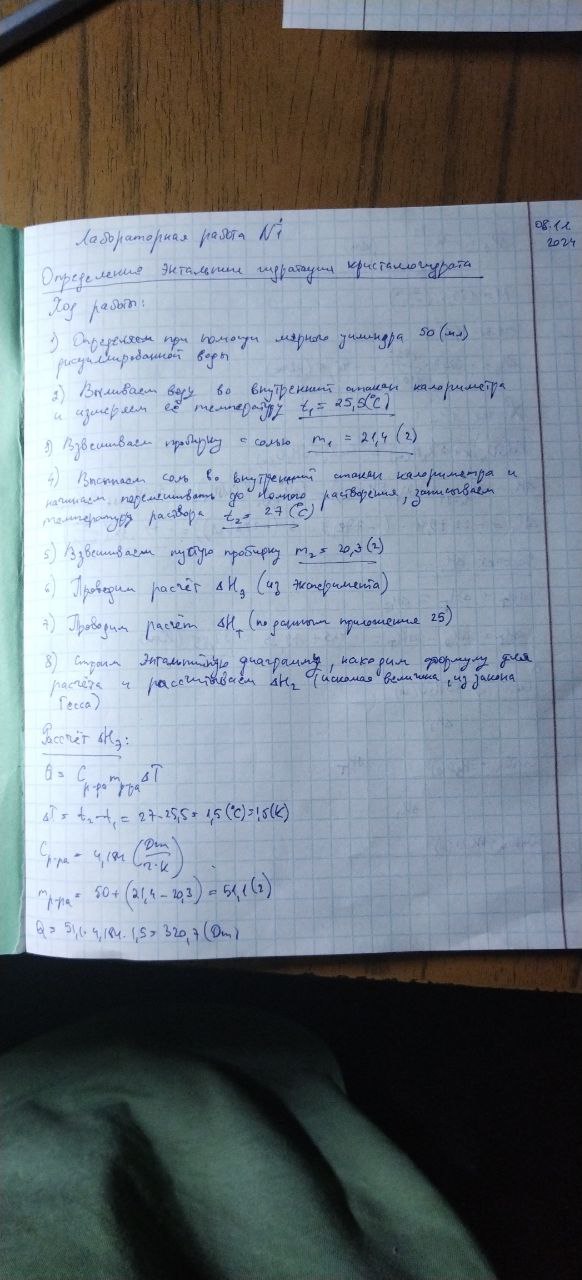 Лабораторная работа №1
08.11
2024
Определение энтальпии гидратации кристаллогидрата
Ход работы:
1) Определяем при помощи мерного цилиндра 50 (мл)
дисциллированной воды
2) Выливаем воду во внутренний стакан калориметра
и измеряем её температуру t₁ = 25,5(°C)
3) Взвешиваем пробирку с солью m₁ = 21,4 (г)
4) Высыпаем соль во внутренний стакан калориметра и
начинаем перемешивать до полного растворения, записываем
температуру раствора t₂ = 27 (°C)
5) Взвешиваем пустую пробирку m₂ = 20,3 (г)
6) Проводим расчёт ΔHэ (из эксперимента)
7) Проводим расчёт ΔHт (по данным приложения 25)
8) Строим энтальпийную диаграмму, находим формулу для
расчёта и рассчитываем ΔH₂ (искомая величина, из закона
Гесса)
Рассчёт ΔHэ:
Q = Cр-ра mр-ра ΔT
ΔT = t₂ - t₁ = 27-25,5 = 1,5 (°C) = 1,5 (K)
Cр-ра = 4,184 (Дж/г·K)
mр-ра = 50 + (21,4 - 20,3) = 51,1 (г)
Q = 51,1 · 4,184 · 1,5 = 320,7 (Дж)